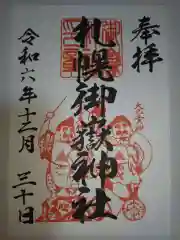 奉拝
札幌御嶽神社
令和六年十二月三十日